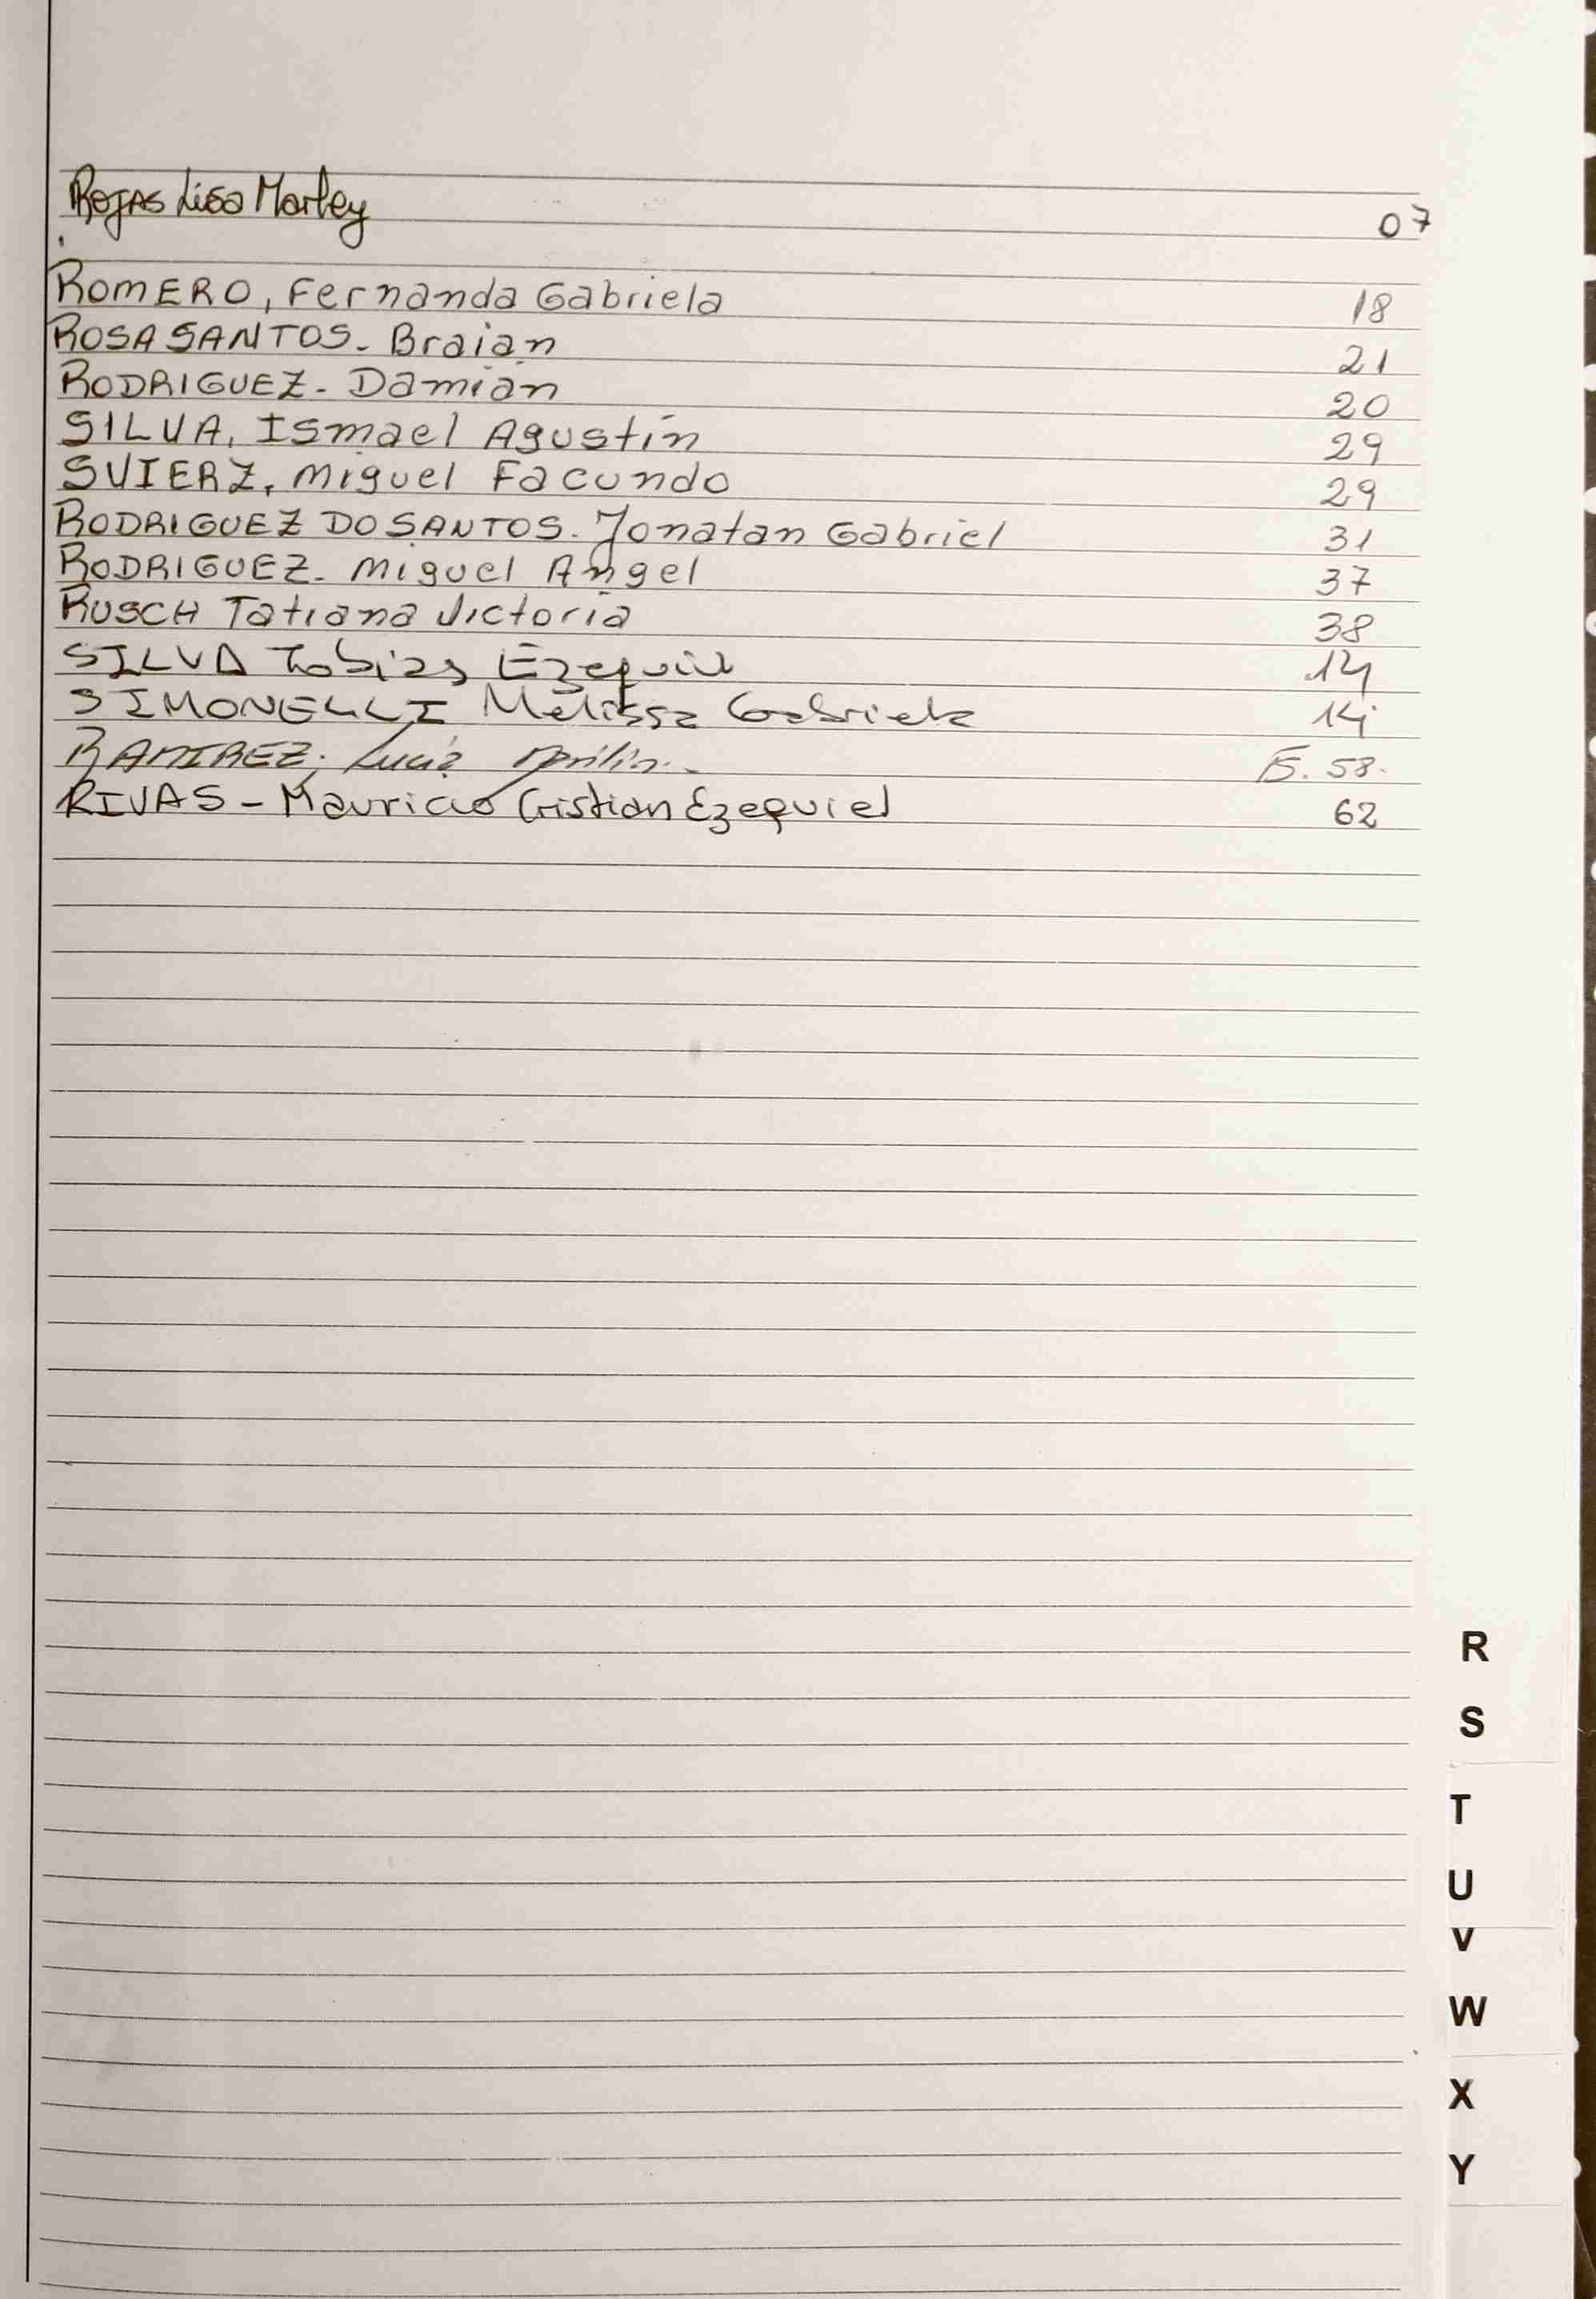 ROJAS Lisa Marley 07
ROMERO, Fernanda Gabriela 18
ROSA SANTOS. Braian 21
RODRIGUEZ. Damián 20
SILVA, Ismael Agustín 29
SVIERZ, Miguel Facundo 29
RODRIGUEZ DO SANTOS. Jonatan Gabriel 31
RODRIGUEZ. Miguel Angel 37
RUSCH Tatiana Victoria 38
SILVA Tobias Ezequiel 14
SIMONELLI Melissa Gabriela 14
RAMIREZ; Lucía 58.
RIVAS - Mauricio Cristian Ezequiel 62
R
S
T
U
V
W
X
Y